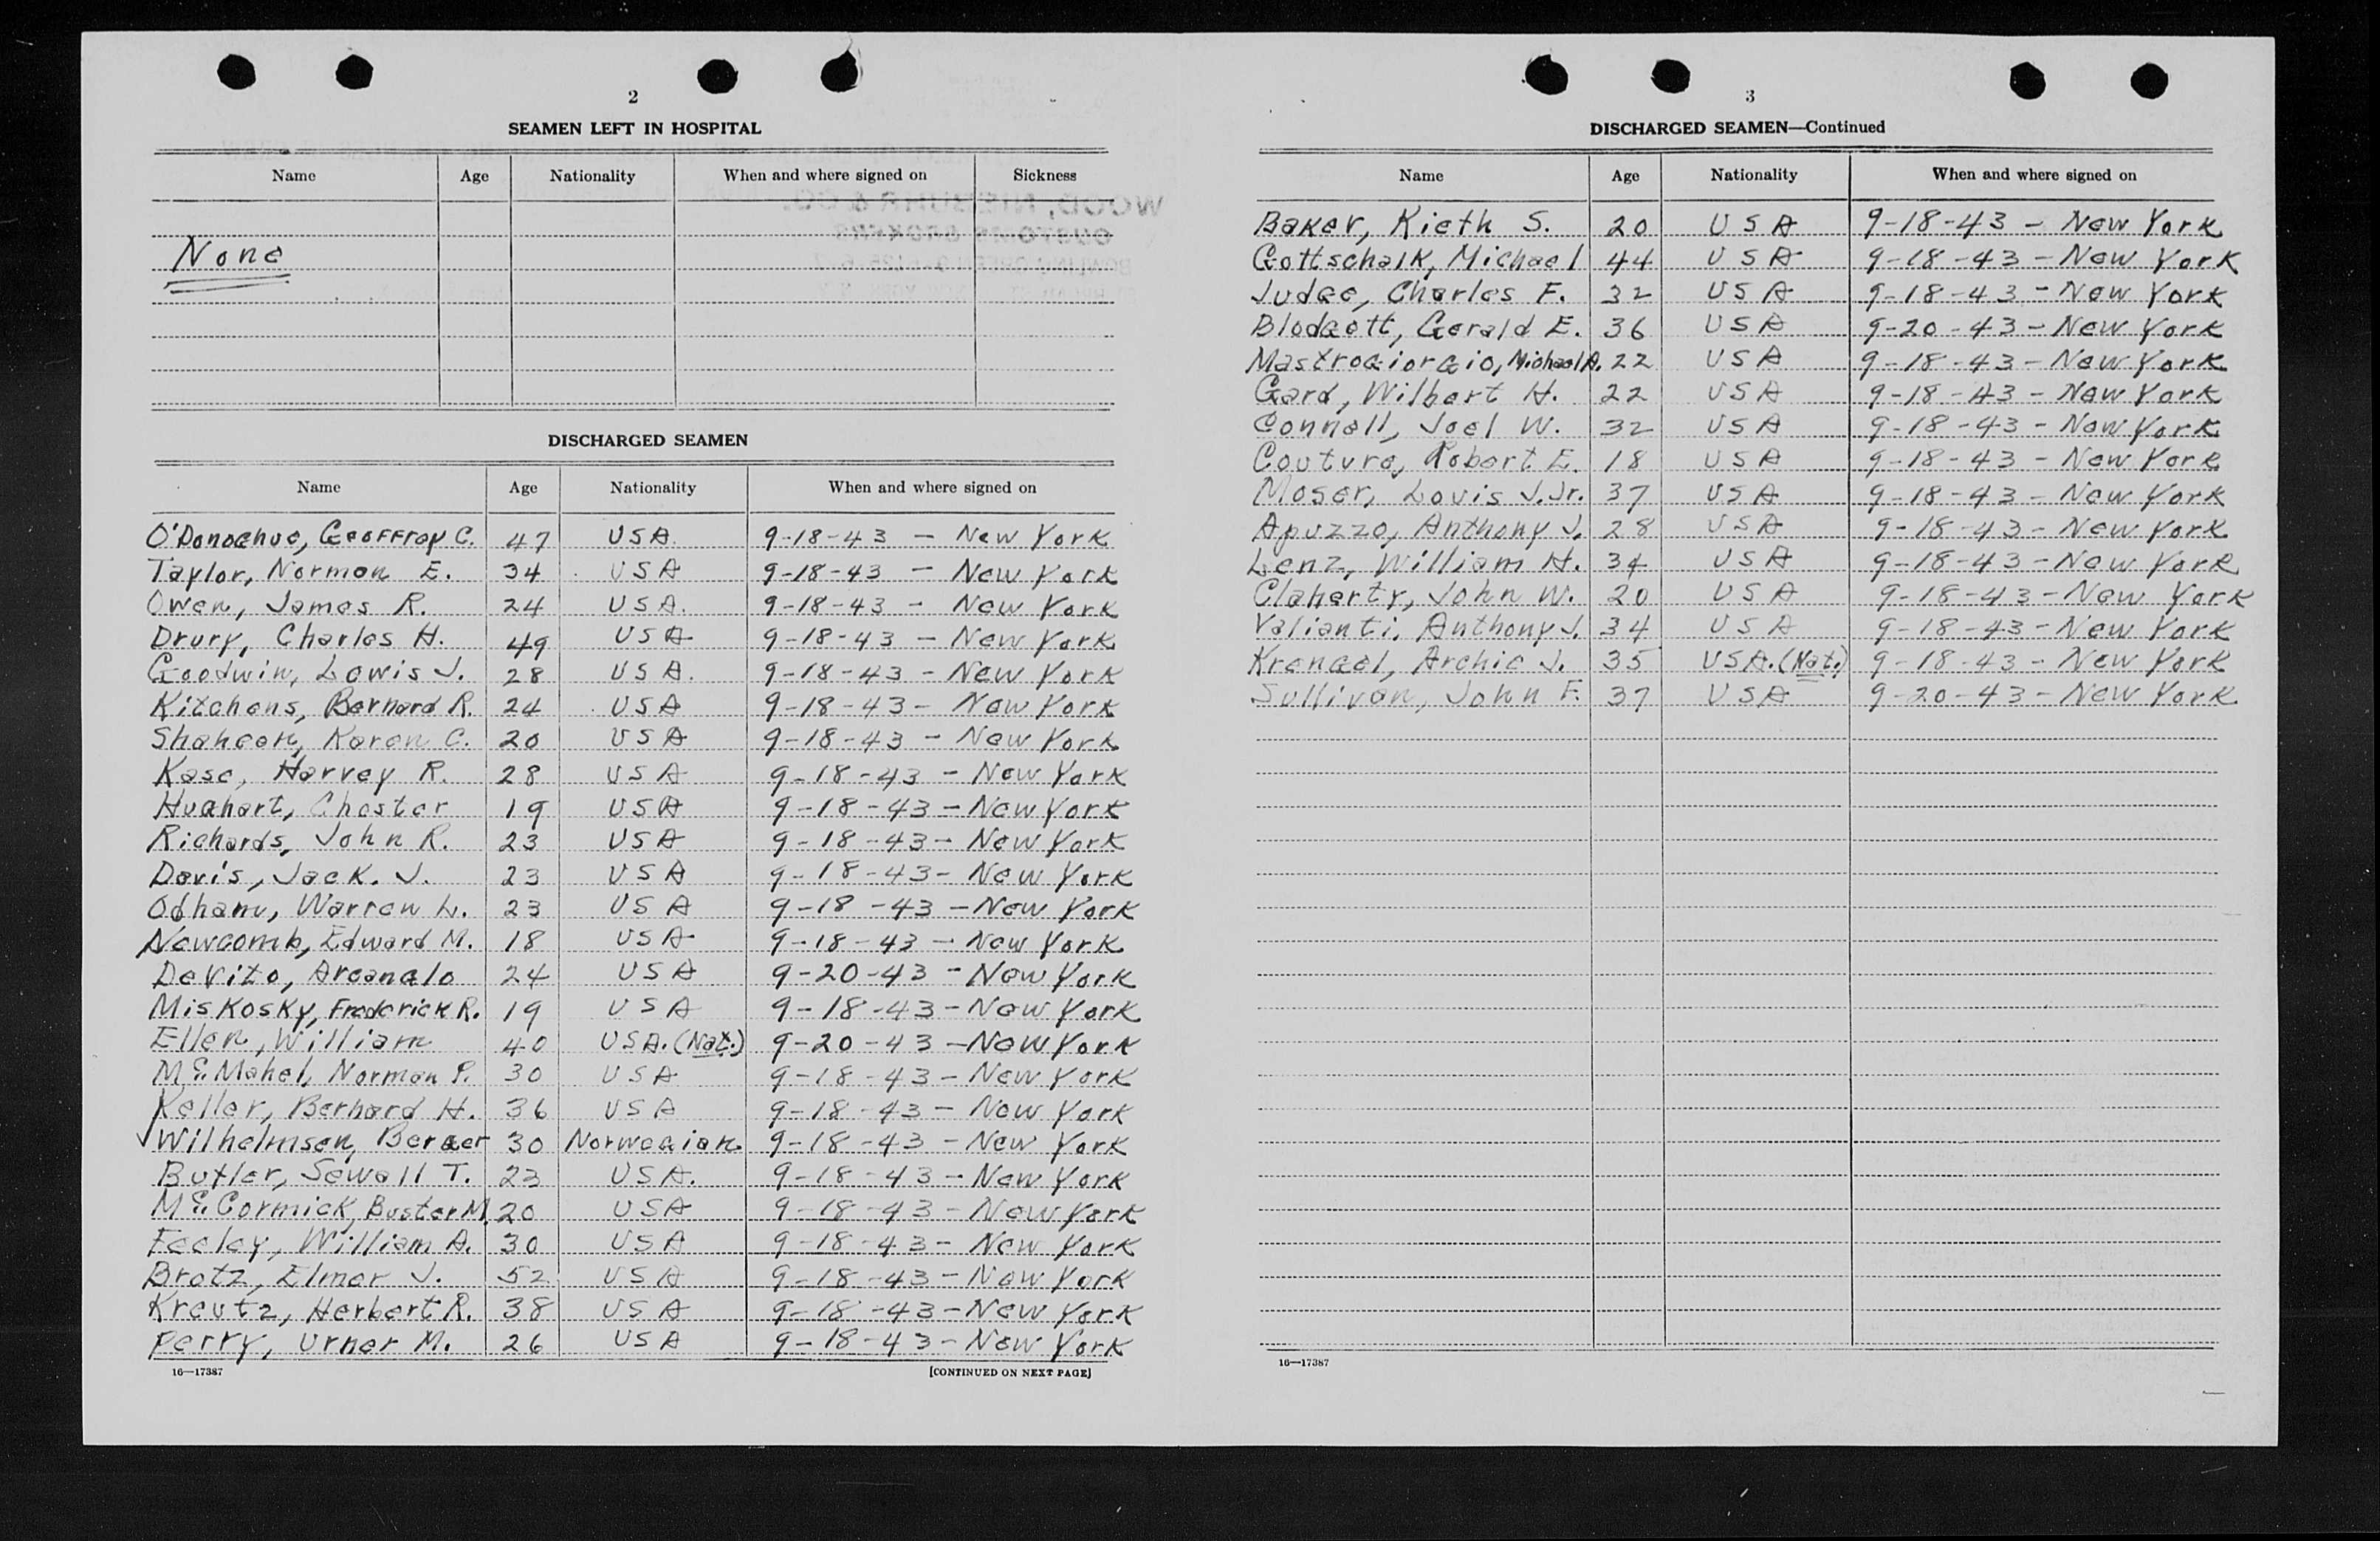 2
SEAMEN LEFT IN HOSPITAL
Name Age Nationality When and where signed on Sickness
None
DISCHARGED SEAMEN
Name Age Nationality When and where signed on
O'Donoghue, Geoffroy C. 47 USA. 9-18-43 — New York
Taylor, Norman E. 34 USA 9-18-43 — New York
Owen, James R. 24 USA. 9-18-43 - New York
Drury, Charles H. 49 USA 9-18-43 — New York
Goodwin, Lewis J. 28 USA. 9-18-43 - New York
Kitchens, Bernard R. 24 USA 9-18-43 - New York
Shaheen, Karen C. 20 USA 9-18-43 - New York
Kase, Harvey R. 28 USA 9-18-43 - New York
Hughart, Chester 19 USA 9-18-43 - New York
Richards, John R. 23 USA 9-18-43 - New York
Davis, Jack. J. 23 USA 9-18-43 - New York
Odham, Warren L. 23 USA 9-18-43 - New York
Newcomb, Edward M. 18 USA 9-18-43 - New York
DeVito, Arcangelo 24 USA 9-20-43 - New York
Miskosky, Frederick R. 19 USA 9-18-43 - New York
Ellen, William 40 USA. (Nat.) 9-20-43 - New York
McMahel, Norman P. 30 USA 9-18-43 - New York
Keller, Bernard H. 36 USA 9-18-43 - New York
✓ Wilhelmsen, Berger 30 Norwegian 9-18-43 - New York
Butler, Sewall T. 23 USA. 9-18-43 - New York
McCormick, Buster M. 20 USA 9-18-43 - New York
Feeley, William A. 30 USA 9-18-43 - New York
Bratz, Elmer J. 52 USA 9-18-43 - New York
Kreutz, Herbert R. 38 USA 9-18-43 - New York
Perry, Urner M. 26 USA 9-18-43 - New York
16—17387 [CONTINUED ON NEXT PAGE]
3
DISCHARGED SEAMEN—Continued
Name Age Nationality When and where signed on
Baker, Kieth S. 20 USA 9-18-43 - New York
Gottschalk, Michael 44 USA 9-18-43 - New York
Judge, Charles F. 32 USA 9-18-43 - New York
Blodgett, Gerald E. 36 USA 9-20-43 - New York
Mastrogiorgio, Michael A. 22 USA 9-18-43 - New York
Gard, Wilbert H. 22 USA 9-18-43 - New York
Connell, Joel W. 32 USA 9-18-43 - New York
Couture, Robert E. 18 USA 9-18-43 - New York
Moser, Louis J. Jr. 37 USA 9-18-43 - New York
Apuzzo, Anthony J. 28 USA 9-18-43 - New York
Lenz, William H. 34 USA 9-18-43 - New York
Claherty, John W. 20 USA 9-18-43 - New York
Valianti, Anthony J. 34 USA 9-18-43 - New York
Krengel, Archie J. 35 USA. (Nat.) 9-18-43 - New York
Sullivan, John F. 37 USA 9-20-43 - New York
16—17387